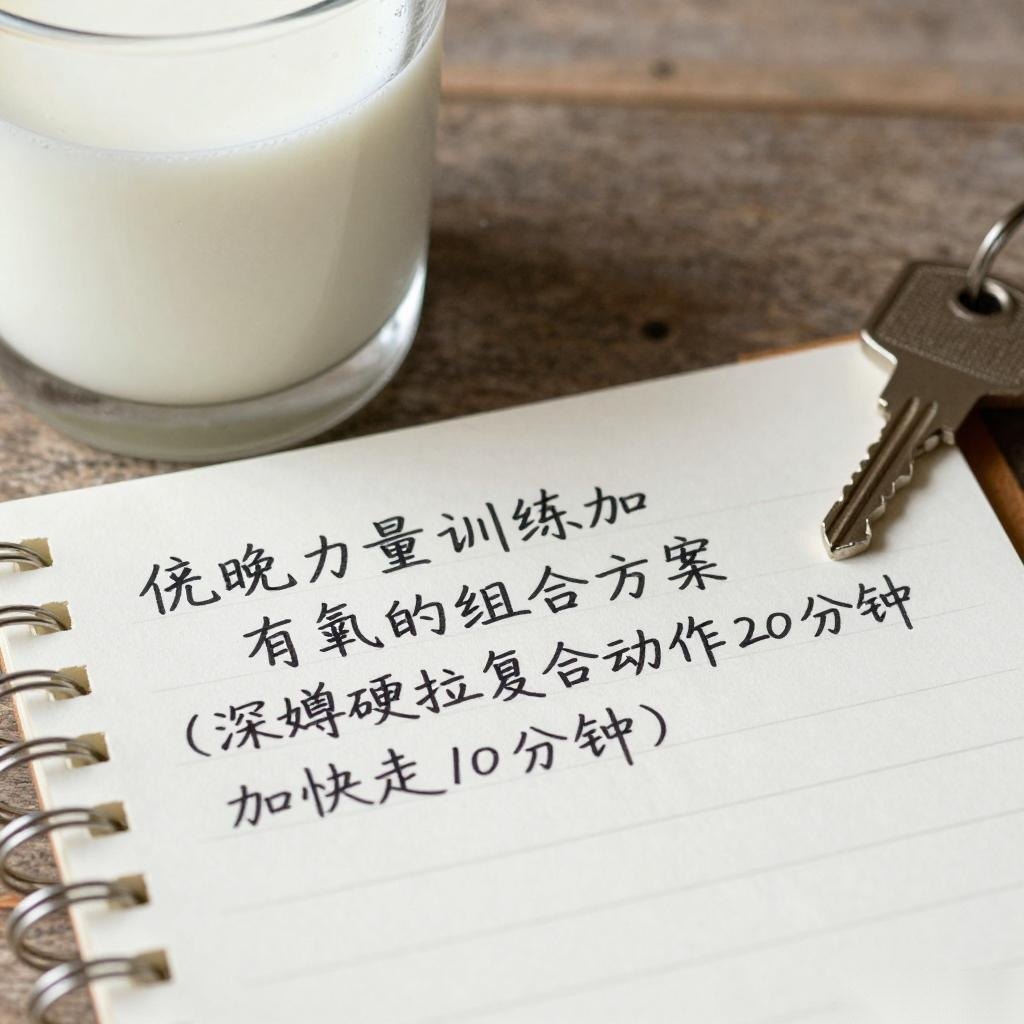 傍晚力量训练加
有氧的组合方案
(深蹲硬拉复合动作20分钟
加快走10分钟)